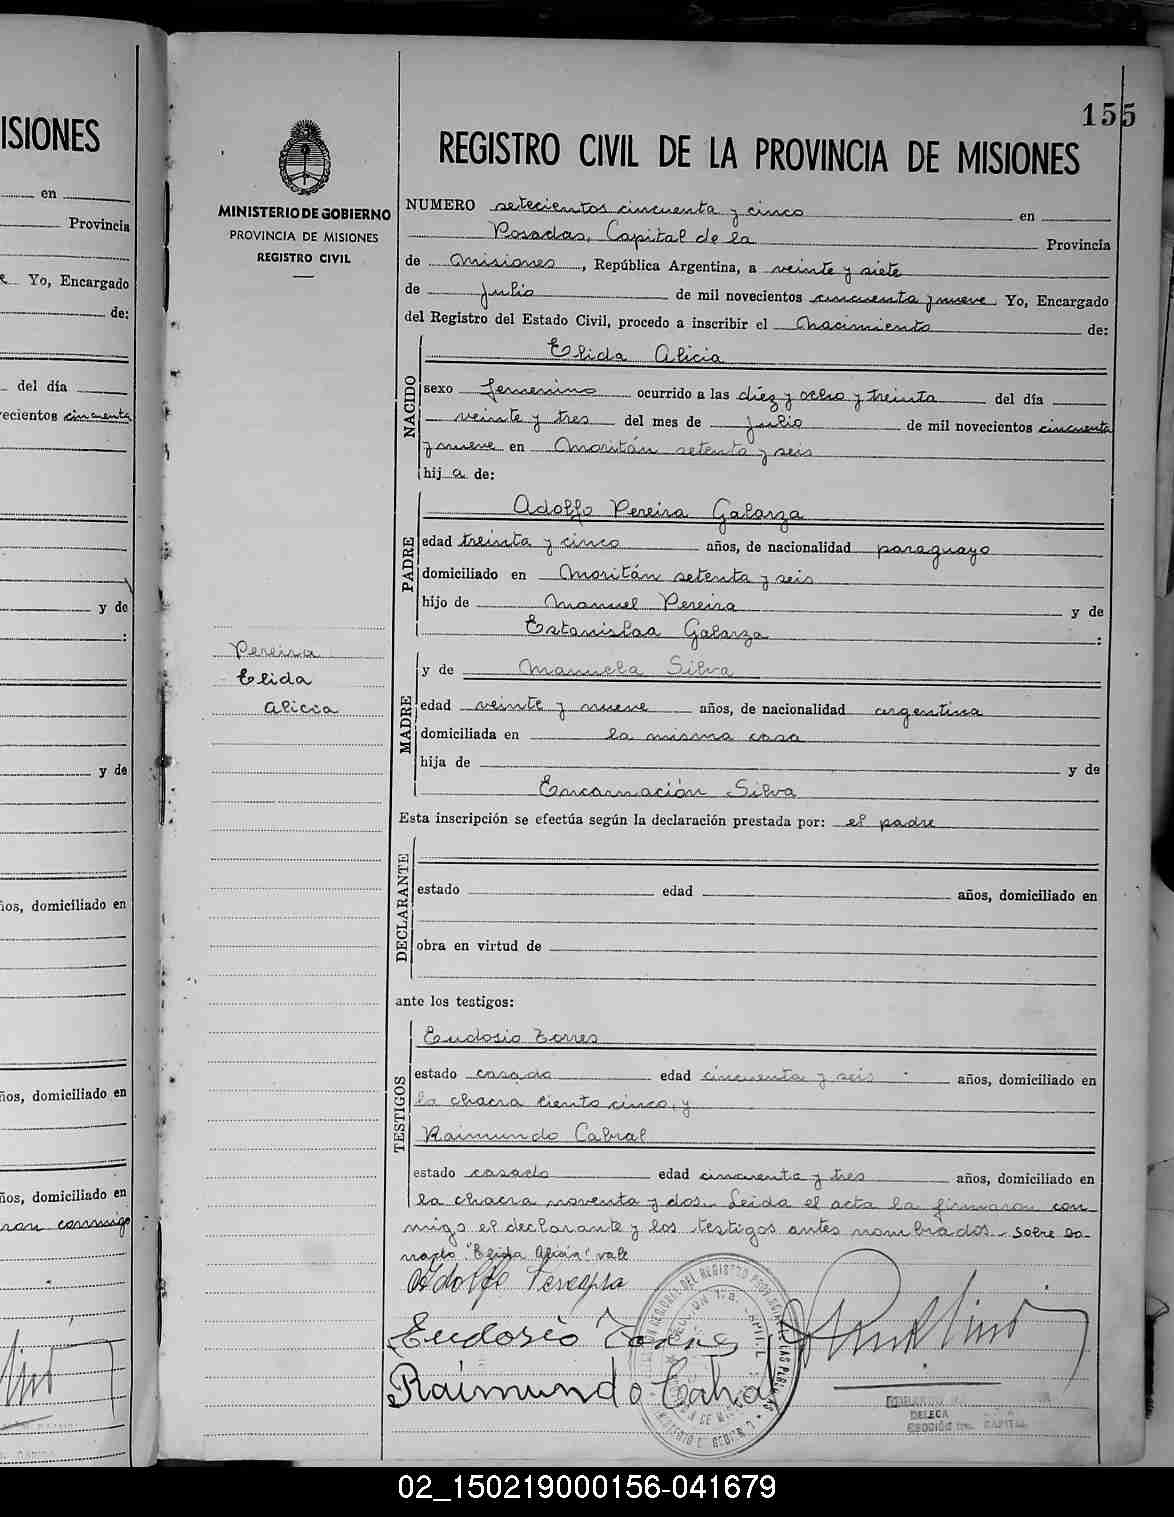 ISIONES
en
Provincia
Yo, Encargado
de:
del día
ecientos cincuenta
y de
:
y de
ños, domiciliado en
ños, domiciliado en
ños, domiciliado en
ron conmigo
155
MINISTERIO DE GOBIERNO
PROVINCIA DE MISIONES
REGISTRO CIVIL
Pereira
Elida
Alicia
REGISTRO CIVIL DE LA PROVINCIA DE MISIONES
NUMERO setecientos cincuenta y cinco en
Posadas, Capital de la Provincia
de Misiones, República Argentina, a veinte y siete
de Julio de mil novecientos cincuenta y nueve Yo, Encargado
del Registro del Estado Civil, procedo a inscribir el Nacimiento de:
NACIDO
Elida Alicia
sexo femenino ocurrido a las diez y ocho y treinta del día
veinte y tres del mes de Julio de mil novecientos cincuenta
y nueve en Moritán setenta y seis
hij a de:
PADRE
Adolfo Pereira Galarza
edad treinta y cinco años, de nacionalidad paraguayo
domiciliado en Moritán setenta y seis
hijo de Manuel Pereira y de
Estanislaa Galarza :
MADRE
y de Manuela Silva
edad veinte y nueve años, de nacionalidad argentina
domiciliada en la misma casa
hija de y de
Encarnación Silva
Esta inscripción se efectúa según la declaración prestada por: el padre
DECLARANTE
estado edad años, domiciliado en
obra en virtud de
ante los testigos:
TESTIGOS
Eudosio Torres
estado casado edad cincuenta y seis años, domiciliado en
la chacra ciento cinco, y
Raimundo Cabral
estado casado edad cincuenta y tres años, domiciliado en
la chacra noventa y dos. Leida el acta la firmaron con-
migo el declarante y los testigos antes nombrados. Sobre bo-
rrado "Elida Alicia" vale
Adolfo Pereyra
Eudosio Torres
Raimundo Cabral
DELEGA
SECCIÓN CAPITAL
02_150219000156-041679